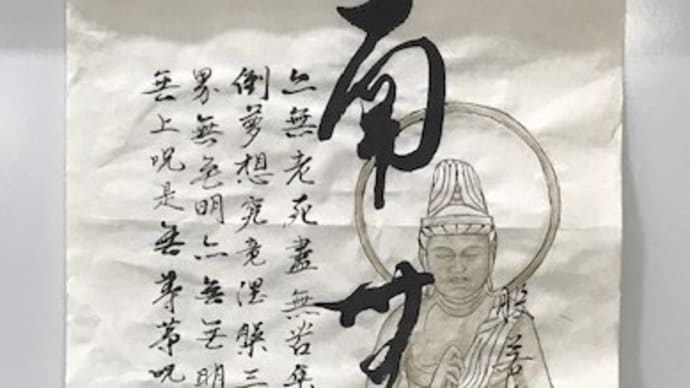 般若
南無
亦無老死盡無苦集
倒夢想究竟涅槃三
界無無明亦無無明
無上呪是無等等呪